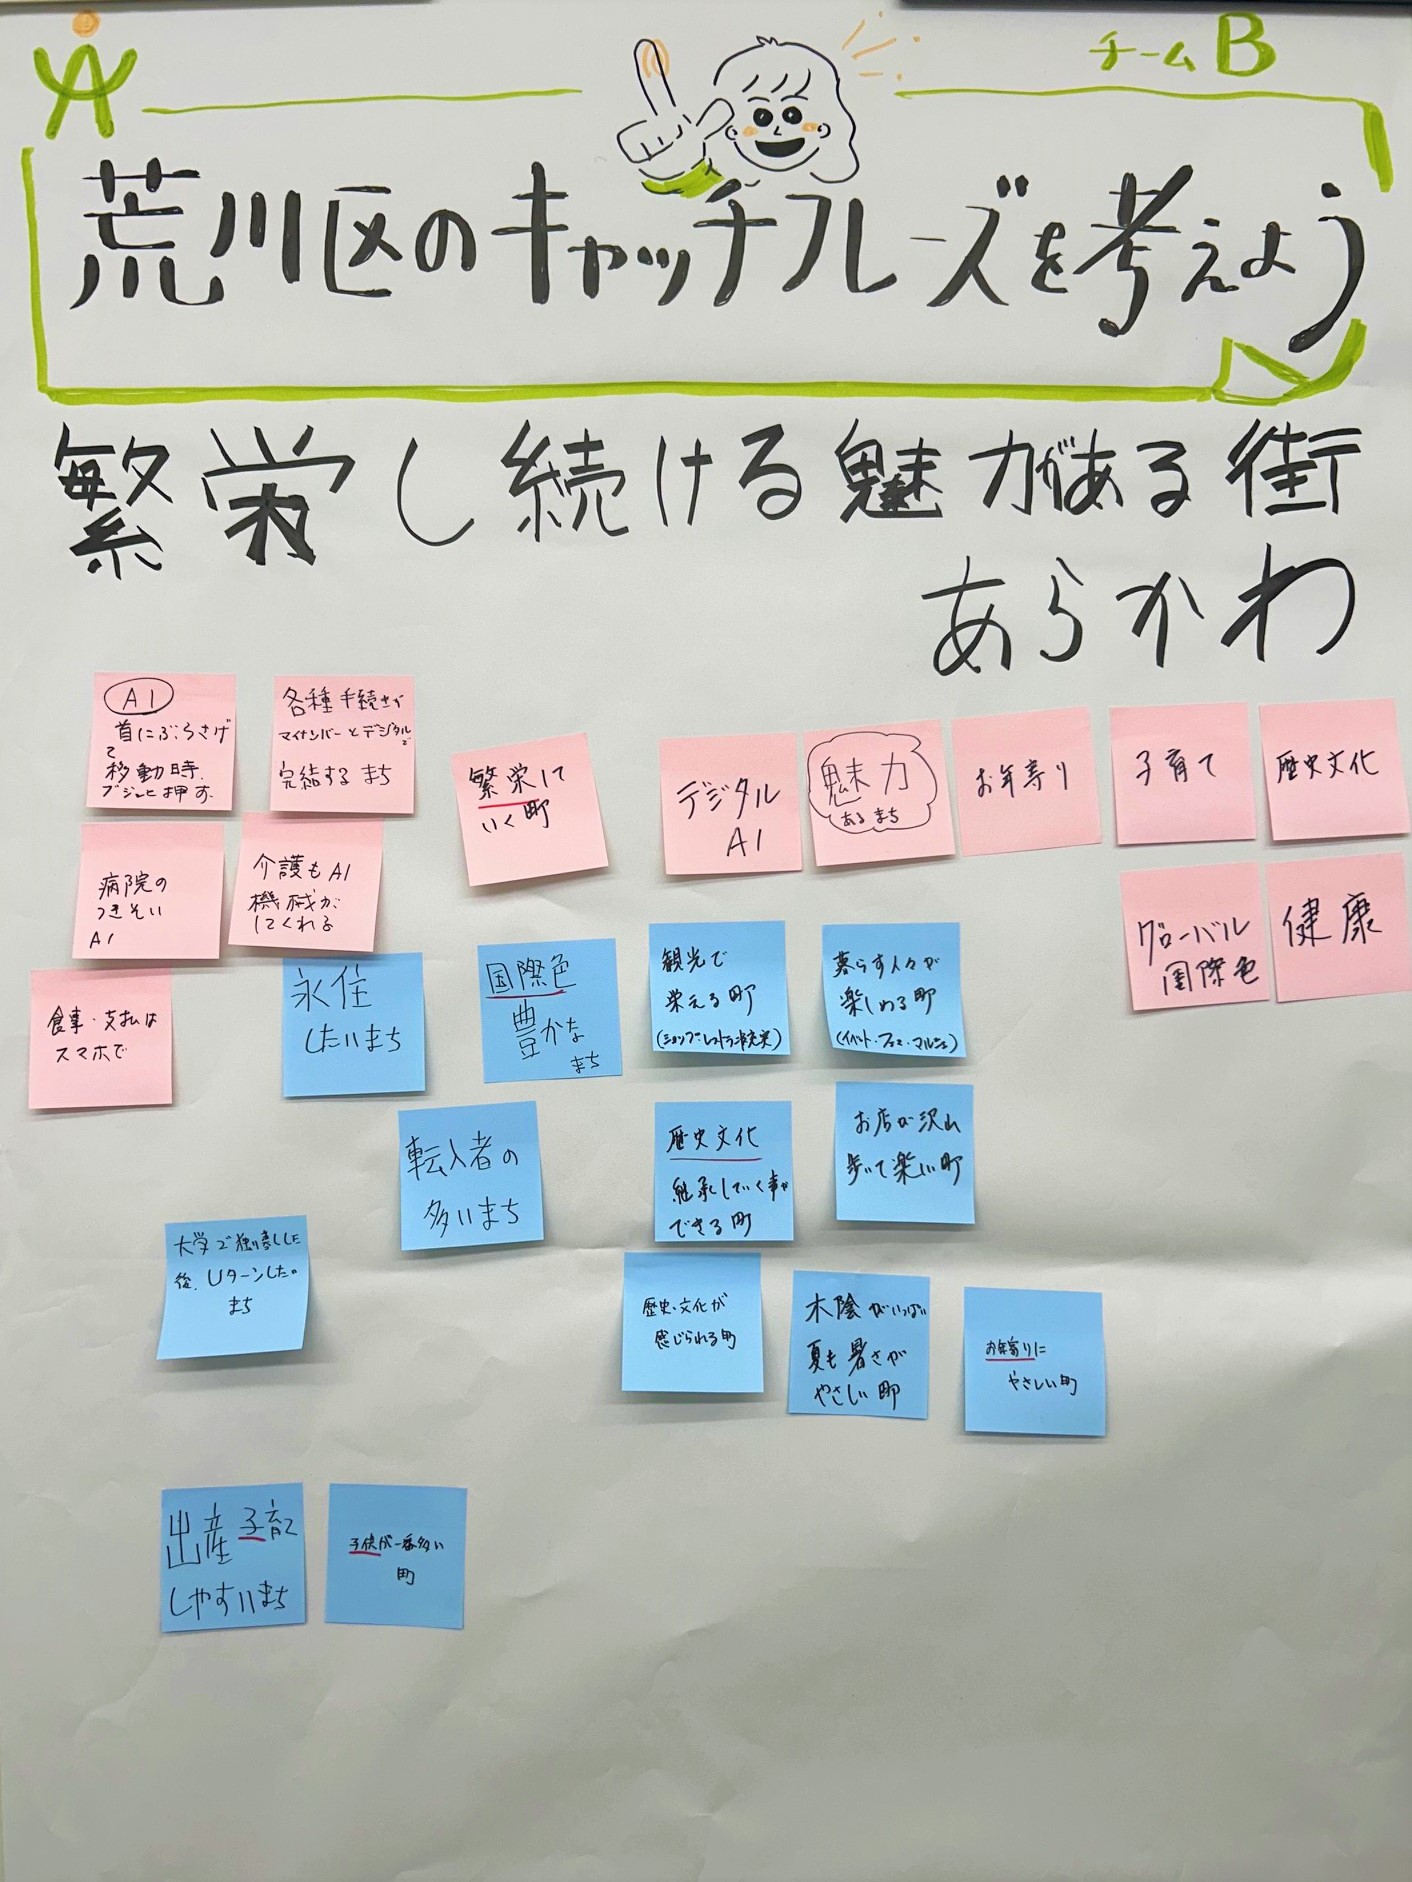 チームB
荒川区のキャッチフレーズを考えよう
繁栄し続ける魅力がある街
あらかわ
AI
首にぶらさげ
て
移動時、
ブジーと押す。
各種手続きが
マイナンバーとデジタルで
完結するまち
繁栄して
いく町
デジタル
AI
魅力
あるまち
お年寄り
子育て
歴史文化
病院の
つきそい
AI
介護もAI
機械が
してくれる
グローバル
国際色
健康
食事・支払は
スマホで
永住
したいまち
国際色
豊かな
まち
観光で
栄える町
(ショップ・レストラン充実)
暮らす人々が
楽しめる町
(イベント・フェス・マルシェ)
転入者の
多いまち
歴史文化
継承していく事が
できる町
お店が沢山
歩いて楽しい町
大学で独り暮しした
後、Uターンしたい
まち
歴史・文化が
感じられる町
木陰がいっぱい
夏も暑さが
やさしい町
お年寄りに
やさしい町
出産子育て
しやすいまち
子供が一番多い
町